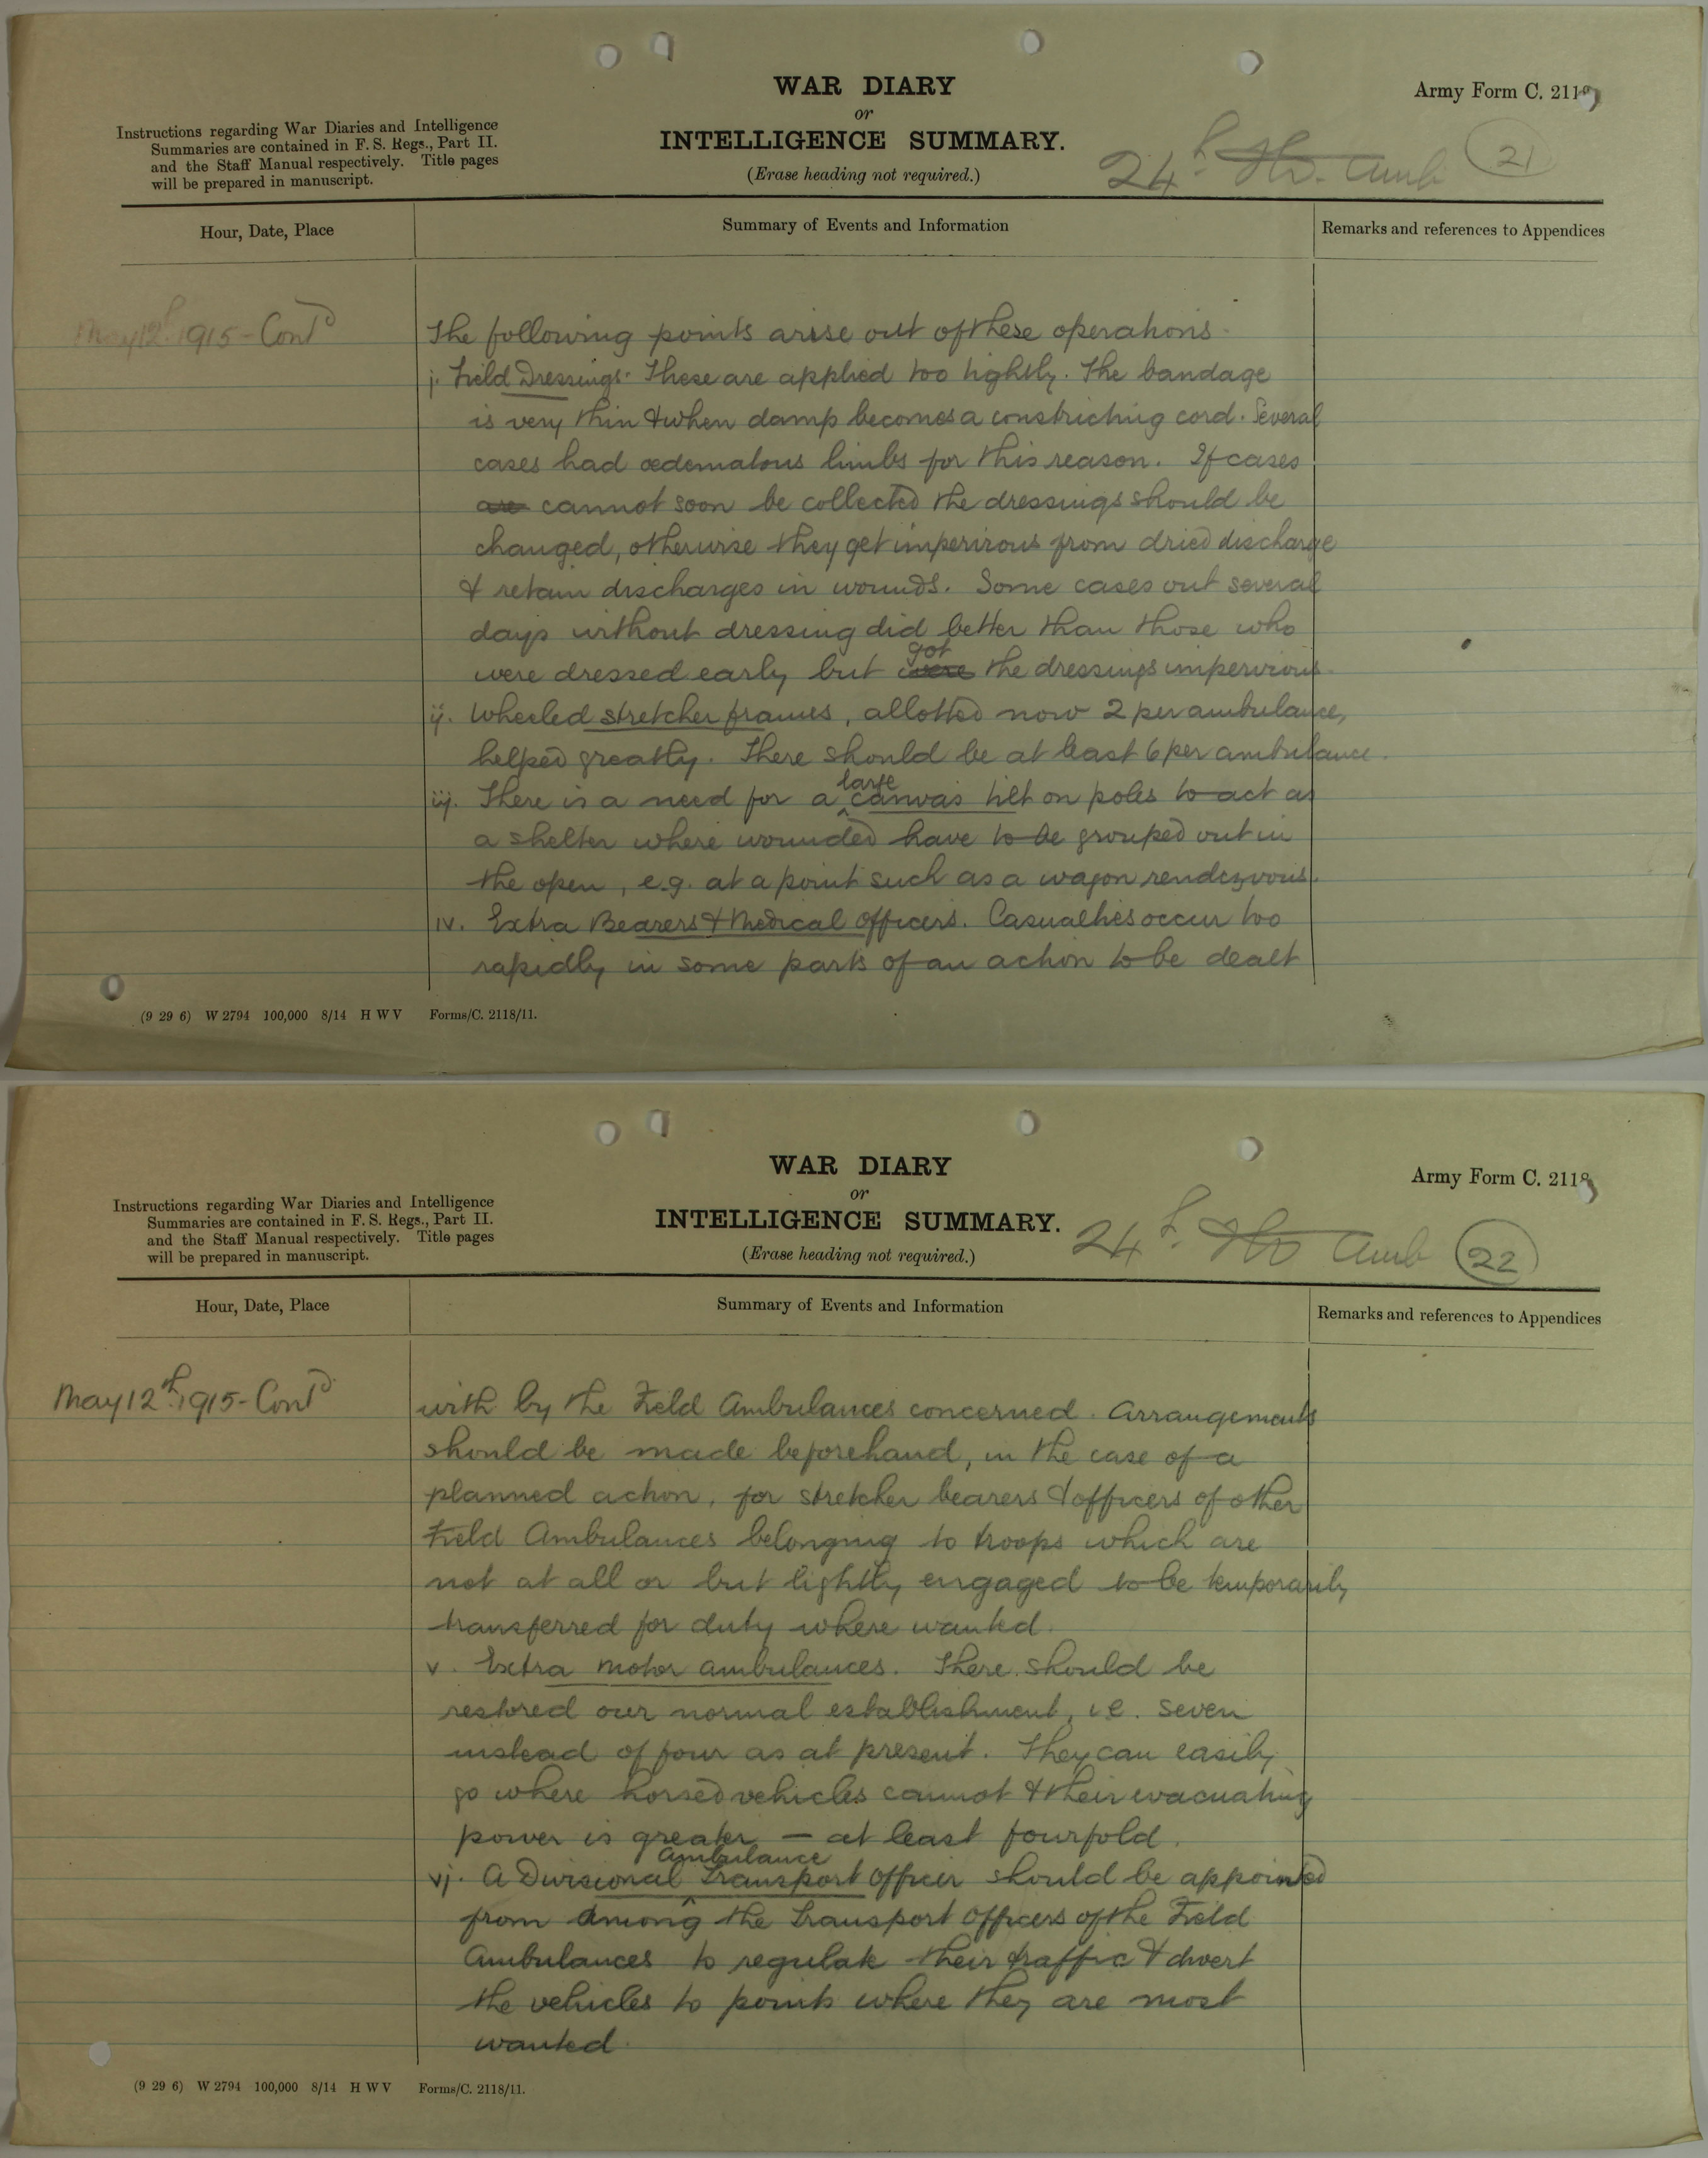 WAR DIARY
or
INTELLIGENCE SUMMARY.
(Erase heading not required.)
Army Form C. 2118
Instructions regarding War Diaries and Intelligence
Summaries are contained in F. S. Regs., Part II.
and the Staff Manual respectively. Title pages
will be prepared in manuscript.
24th Fd. Amb 21
Hour, Date, Place
Summary of Events and Information
Remarks and references to Appendices
May 12th 1915 - Contd
The following points arise out of these operations.
i. Field Dressings. These are applied too tightly. The bandage
is very thin & when damp becomes a constricting cord. Several
cases had œdematous limbs for this reason. If cases
are cannot soon be collected the dressings should be
changed, otherwise they get impervious from dried discharge
& retain discharges in wounds. Some cases out several
days without dressing did better than those who
were dressed early but were got the dressings impervious.
ij. Wheeled stretcher frames, allotted now 2 per ambulance,
helped greatly. There should be at least 6 per ambulance.
iij. There is a need for a large canvas tilt on poles to act as
a shelter where wounded have to be grouped out in
the open, e.g. at a point such as a wagon rendezvous.
iv. Extra Bearers & Medical Officers. Casualties occur too
rapidly in some parts of an action to be dealt
(9 29 6) W 2794 100,000 8/14 H W V Forms/C. 2118/11.
WAR DIARY
or
INTELLIGENCE SUMMARY.
(Erase heading not required.)
Army Form C. 2118
Instructions regarding War Diaries and Intelligence
Summaries are contained in F. S. Regs., Part II.
and the Staff Manual respectively. Title pages
will be prepared in manuscript.
24th Fd Amb 22
Hour, Date, Place
Summary of Events and Information
Remarks and references to Appendices
May 12th 1915 - Contd
with by the Field Ambulances concerned. Arrangements
should be made beforehand, in the case of a
planned action, for stretcher bearers & officers of other
Field Ambulances belonging to troops which are
not at all or but lightly engaged to be temporarily
transferred for duty where wanted.
v. Extra motor ambulances. There should be
restored our normal establishment, i.e. seven
instead of four as at present. They can easily
go where horsed vehicles cannot & their evacuating
power is greater — at least fourfold.
vj. A Divisional Ambulance Transport Officer should be appointed
from among the Transport Officers of the Field
Ambulances to regulate their traffic & divert
the vehicles to points where they are most
wanted.
(9 29 6) W 2794 100,000 8/14 H W V Forms/C. 2118/11.